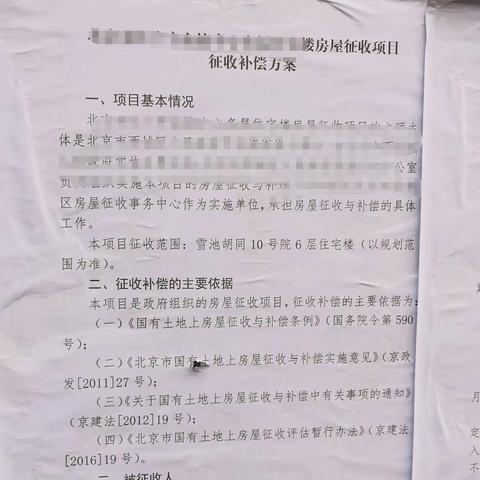 楼房屋征收项目
征收补偿方案
一、项目基本情况
体是北京市西城区
公室
区房屋征收事务中心作为实施单位，承担房屋征收与补偿的具体
工作。
本项目征收范围：雪池胡同10号院6层住宅楼（以规划范
围为准）。
二、征收补偿的主要依据
本项目是政府组织的房屋征收项目，征收补偿的主要依据为：
（一）《国有土地上房屋征收与补偿条例》（国务院令第590
号）；
（二）《北京市国有土地上房屋征收与补偿实施意见》（京政
发[2011]27号）；
（三）《关于国有土地上房屋征收与补偿中有关事项的通知》
（京建法[2012]19号）；
（四）《北京市国有土地上房屋征收评估暂行办法》（京建法
[2016]19号）。
被征收人
月
定
入
不